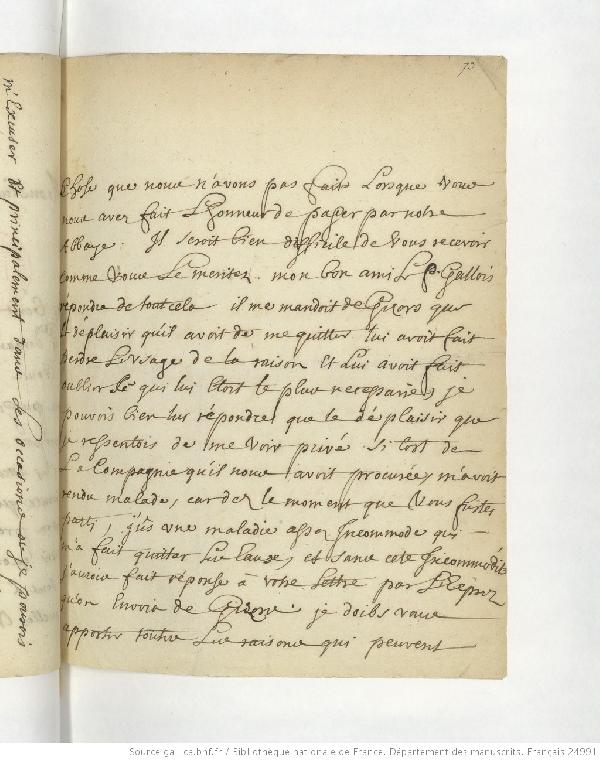 73
chose que nous n'avons pas faite Lorsque Vous
nous avez fait L'honneur de passer par nostre
Abbaye. Il seroit bien difficile de Vous recevoir
comme Vous Le meritez. mon bon ami Le P. Gallois
répondra de tout cela il me mandoit de Gizors que
Le déplaisir qu'il avoit de me quitter lui avoit fait
perdre L'usage de la raison Et Lui avoit fait
oublier ce qui lui Estoit le plus necessaire, je
pouvois bien luy répondre que le déplaisir que
je ressentois de me Voir privé si tost de
La Compagnie qu'il nous avoit procurée, m'avoit
rendu malade, car dez le moment que Vous fustes
parti, j'eus une maladie assez Incommode qui
m'a fait quitter, et sans cete Incommodité
j'aurois fait réponse a votre Lettre par L'Exprez
qu'on Envoia de je doibs vous
apporter toutes Les raisons qui peuvent
m'Excuser Et principalement dans des occasions ou je pouvois